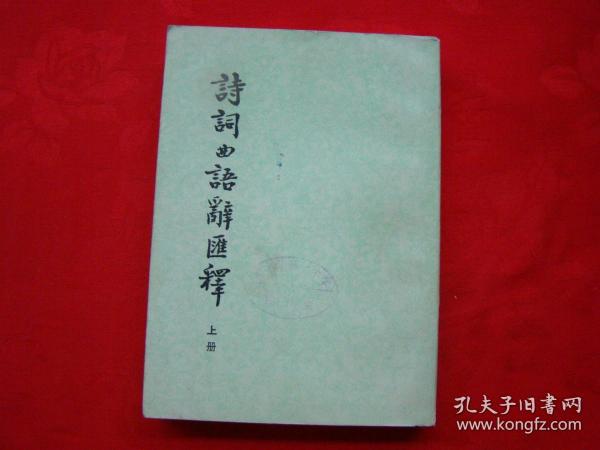 詩詞曲語辭匯釋
上册
孔夫子旧書网
www.kongfz.com